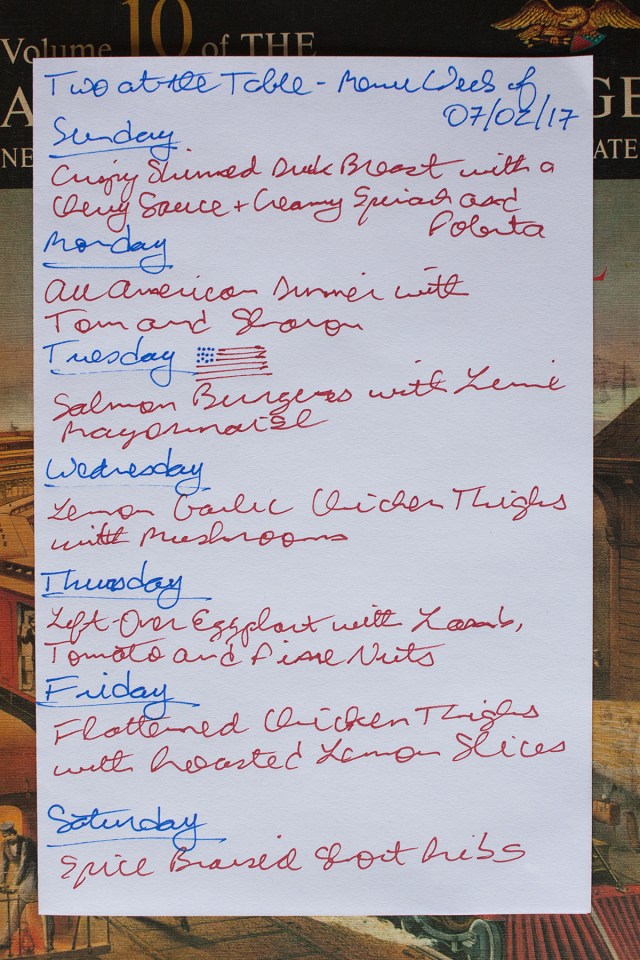 Volume 10 of THE
A
GE
NE
ATE
Two at the Table - Menu Week of
07/02/17
Sunday
Crispy Skinned Duck Breast with a
Cherry Sauce + Creamy Spinach and
Polenta
Monday
All American Dinner with
Tom and Sharon
Tuesday
Salmon Burgers with Lime
Mayonnaise
Wednesday
Lemon Garlic Chicken Thighs
with Mushrooms
Thursday
Left-Over Eggplant with Lamb,
Tomato and Pine Nuts
Friday
Flattened Chicken Thighs
with Roasted Lemon Slices
Saturday
Spice Braised Short Ribs